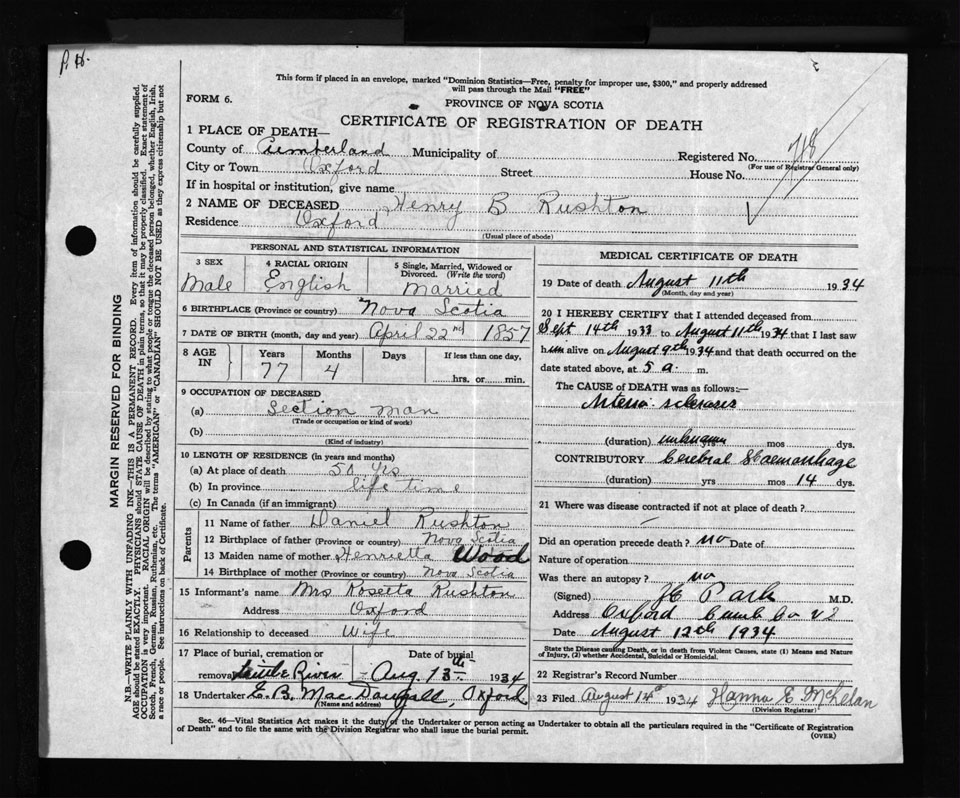 P. H.
This form if placed in an envelope, marked "Dominion Statistics—Free, penalty for improper use, $300," and properly addressed
will pass through the Mail "FREE"
FORM 6.
PROVINCE OF NOVA SCOTIA
CERTIFICATE OF REGISTRATION OF DEATH
1 PLACE OF DEATH—
County of Cumberland Municipality of Registered No. 718
(For use of Registrar General only)
City or Town Oxford Street House No.
If in hospital or institution, give name
2 NAME OF DECEASED Henry B Rushton
Residence Oxford
(Usual place of abode)
PERSONAL AND STATISTICAL INFORMATION
3 SEX 4 RACIAL ORIGIN 5 Single, Married, Widowed or
Divorced. (Write the word)
Male English Married
6 BIRTHPLACE (Province or country) Nova Scotia
7 DATE OF BIRTH (month, day and year) April 22nd 1857
8 AGE IN Years Months Days If less than one day,
77 4 hrs. or min.
9 OCCUPATION OF DECEASED
(a) Section man
(Trade or occupation or kind of work)
(b)
(Kind of industry)
10 LENGTH OF RESIDENCE (in years and months)
(a) At place of death 50 yrs
(b) In province life time
(c) In Canada (if an immigrant)
Parents
11 Name of father Daniel Rushton
12 Birthplace of father (Province or country) Nova Scotia
13 Maiden name of mother Henrietta Wood
14 Birthplace of mother (Province or country) Nova Scotia
15 Informant's name Mrs Rosetta Rushton
Address Oxford
16 Relationship to deceased Wife
17 Place of burial, cremation or Date of burial
removal Little River Aug. 13th 1934
18 Undertaker E. B. MacDougall, Oxford
(Name and address)
MEDICAL CERTIFICATE OF DEATH
19 Date of death August 11th 1934
(Month, day and year)
20 I HEREBY CERTIFY that I attended deceased from
Sept 14th 1933 to August 11th 1934 that I last saw
him alive on August 9th 1934 and that death occurred on the
date stated above, at 5 a. m.
The CAUSE OF DEATH was as follows:—
Arterio sclerosis
(duration) unknown yrs mos dys.
CONTRIBUTORY Cerebral Haemorrhage
(duration) yrs mos 14 dys.
21 Where was disease contracted if not at place of death?
Did an operation precede death? no Date of
Nature of operation
Was there an autopsy? no
(Signed) Park M.D.
Address Oxford Cumb Co
Date August 12th 1934
State the Disease causing Death, or in death from Violent Causes, state (1) Means and Nature
of Injury, (2) whether Accidental, Suicidal or Homicidal.
22 Registrar's Record Number
23 Filed August 14th 1934 Hanna E McKelan
(Division Registrar)
Sec. 46—Vital Statistics Act makes it the duty of the Undertaker or person acting as Undertaker to obtain all the particulars required in the "Certificate of Registration
of Death" and to file the same with the Division Registrar who shall issue the burial permit.
(OVER)
MARGIN RESERVED FOR BINDING
N.B.—WRITE PLAINLY WITH UNFADING INK—THIS IS A PERMANENT RECORD. Every item of information should be carefully supplied.
AGE should be stated EXACTLY. PHYSICIANS should STATE CAUSE OF DEATH in plain terms, so that it may be properly classified. Exact statement of
OCCUPATION is very important. RACIAL ORIGIN will be described by stating to what people or tongue the deceased person belonged, whether English, Irish,
Scotch, French, German, Russian, Ruthenian, etc. The terms "AMERICAN" or "CANADIAN" SHOULD NOT BE USED as they express citizenship but not
a race or people. See instructions on back of Certificate.